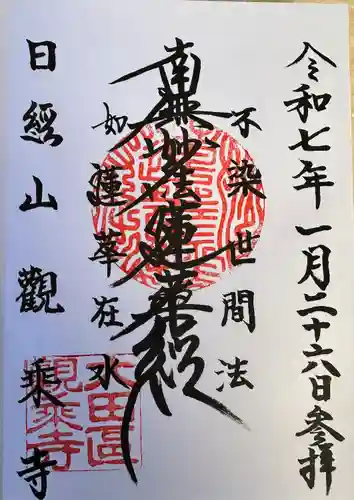 令和七年一月二十六日参拝
不染世間法
南無妙法蓮華経
如蓮華在水
日經山觀乗寺
大田區
観乗寺